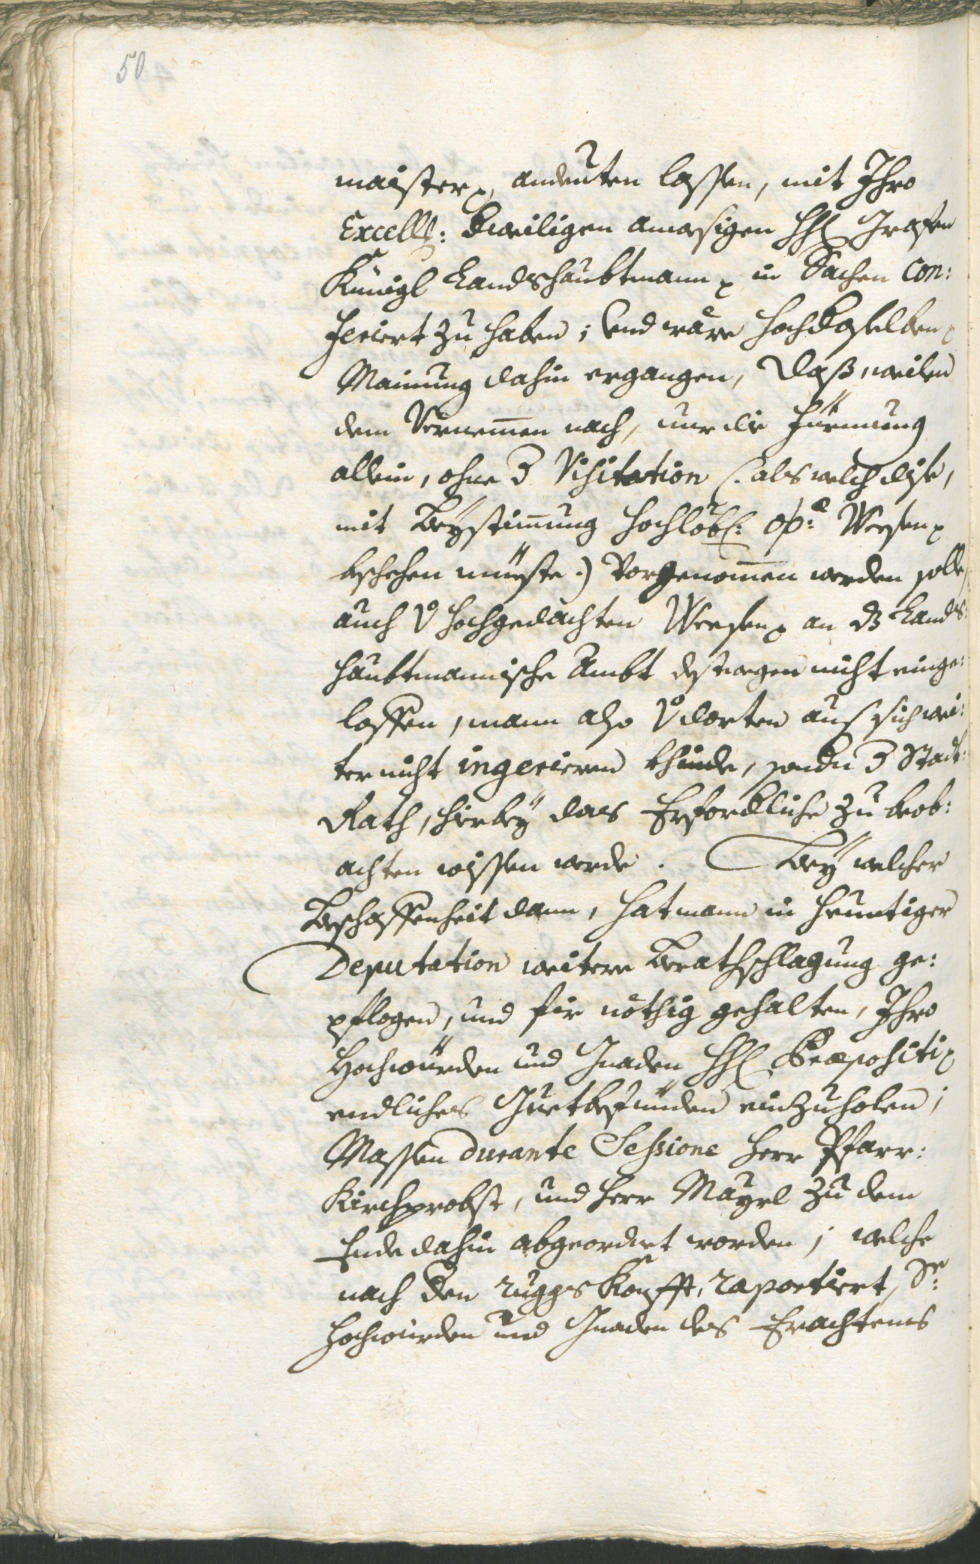 50
maister, andeuten lassen, mit Ihro
Excell: derweiligen amtesigen H: Grafen
Künigl Landshaubtmann in Sachen con:
feriert zu haben; und wäre hochdeselben
Mainung dahin ergangen, daß, weilen
dem Vernemen nach, nur die Fürnung
allein, ohne Visitation /: als welche dise,
mit Beÿstimung hochlöbl: oö: Weesen
beschehen müeste :/ vorgenomen werden solle,
auch v: hochgedachten Weesen an dz Lands:
haubtmannische Ambt destwegen nicht einge:
loffen, mann also v: dorten aus sich wei:
ter nicht ingerieren khinde, sondern Stadt:
Rath, hierbeÿ das Erforderliche zu beob:
achten wissen werde. Beÿ welcher
Beschaffenheit dann, hat mann in heuntiger
Deputation weitere Berathschlagung ge:
pflogen, und fir nöthig gehalten, Ihro
Hochwürden und Gnaden H: Præpositi
endliches Guetbefünden einzuholen;
Massen durante Sessione Herr Pfarr:
Kirchprobst, und Herr Maÿrl zu dem
Ende dahin abgeordnet worden; welche
nach den ruggs Konfft, raportiert, Sr:
Hochwürden und Gnaden des Erachtens